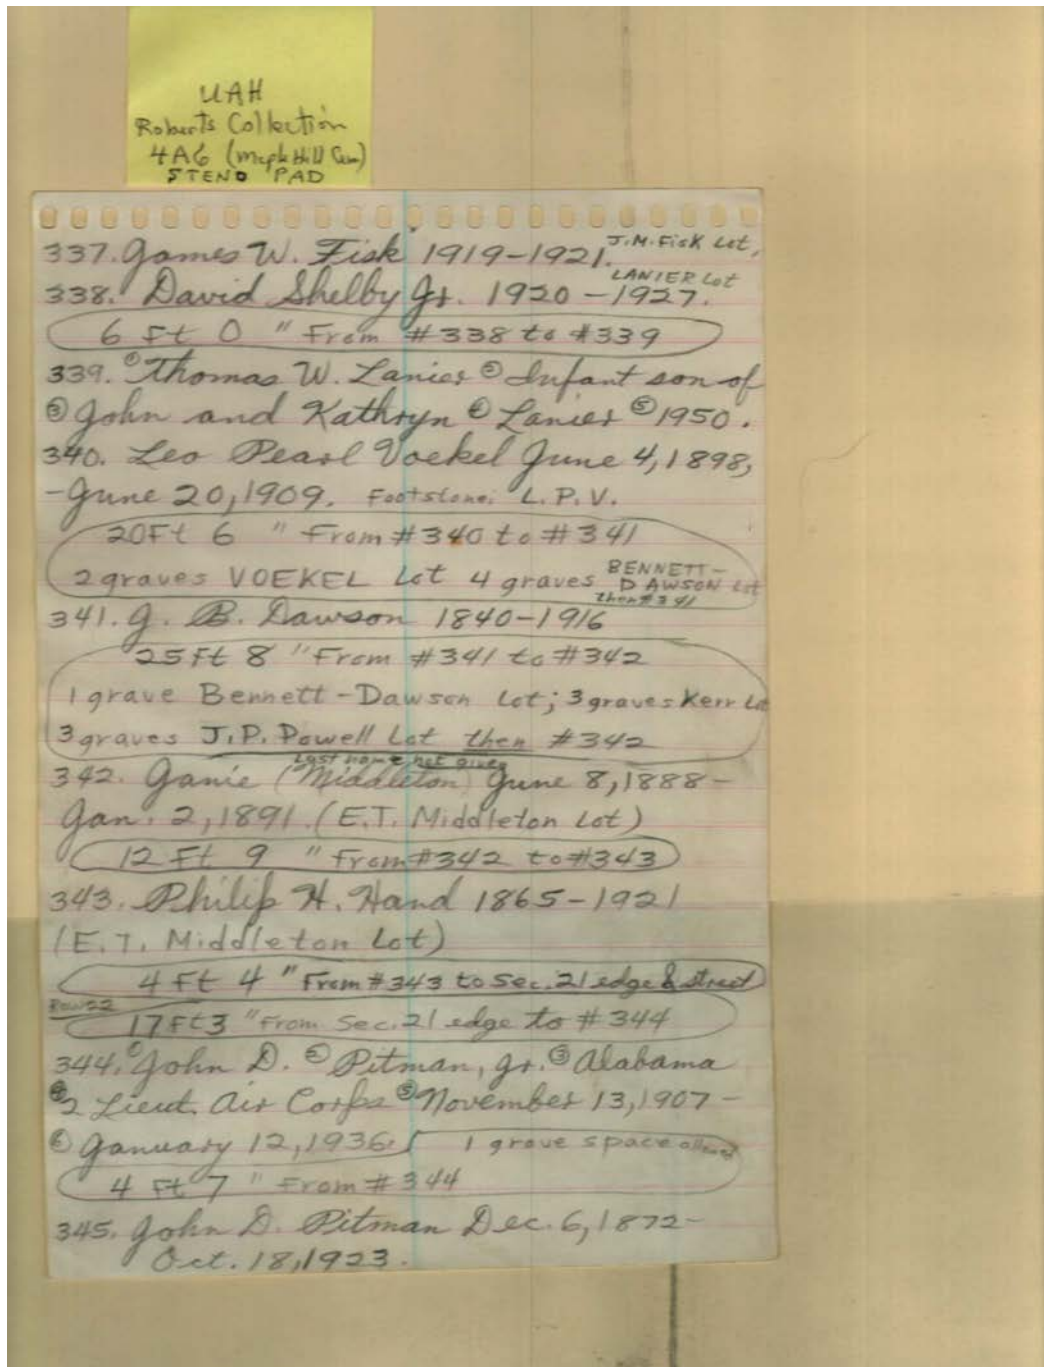 UAH
Roberts Collection
4A6 (Maple Hill Cem)
STENO PAD
337. James W. Fisk 1919-1921. J.M. Fisk Lot.
338. David Shelby Jr. 1920-1927. LANIER Lot
6 Ft 0 " From #338 to #339
339. ① Thomas W. Lanier ② Infant son of
③ John and Kathryn ④ Lanier ⑤ 1950.
340. Leo Pearl Voekel June 4, 1898,
-June 20, 1909. Footstone: L.P.V.
20Ft 6 " From #340 to #341
2 graves VOEKEL Lot 4 graves BENNETT-
DAWSON Lot
then #341
341. J. B. Dawson 1840-1916
25 Ft 8 " From #341 to #342
1 grave Bennett-Dawson Lot; 3 graves Kerr Lot
3 graves J.P. Powell Lot then #342
Last name not given
342. Janie (Middleton) June 8, 1888-
Jan. 2, 1891. (E.T. Middleton Lot)
12 Ft 9 " From #342 to #343
343. Philip H. Hand 1865-1921
(E.T. Middleton Lot)
4 Ft 4 " From #343 to Sec. 21 edge & street
Row 22
17 Ft 3 " From Sec. 21 edge to #344
344. ① John D. ② Pitman, Jr. ③ Alabama
④ 2 Lieut. Air Corps ⑤ November 13, 1907-
⑥ January 12, 1936. 1 grave space allowed
4 Ft 7 " From #344
345. John D. Pitman Dec. 6, 1872-
Oct. 18, 1923.